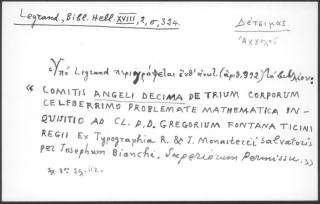 Legrand, Bibl. Hell. XVIII, 2, σ, 324.
Δέτσιμας
Ἄγγελος
Ὑπό Legrand περιγράφεται ἐνθ' ἀνωτ. (ἀριθ. 992) τό βιβλίον:
"COMITIS ANGELI DECIMA DE TRIUM CORPORUM
CELEBERRIMO PROBLEMATE MATHEMATICA IN-
QUISITIO AD CL. D.D. GREGORIUM FONTANA TICINI
REGII Ex Typographia R. & I. Monasterii Salvatoris
per Josephum Bianchi, Superiorum Permissu."